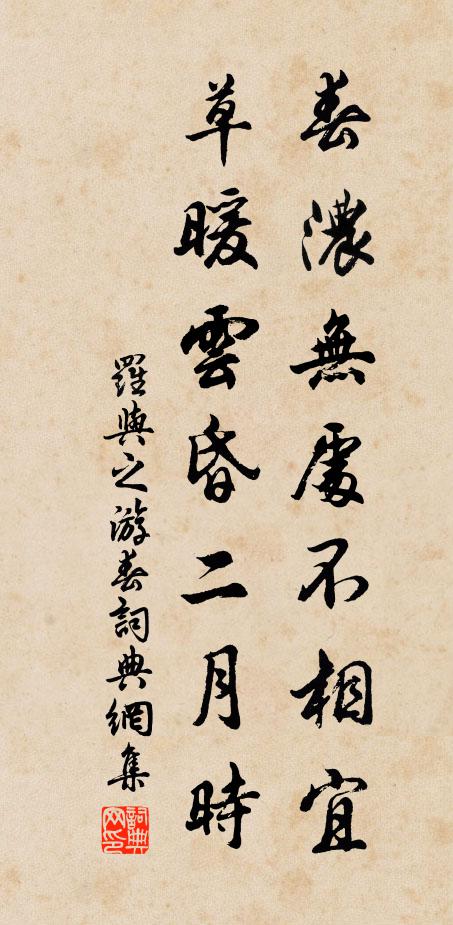 春濃無處不相宜
草暖雲昏二月時
羅與之游春詞典網集
詞典网印